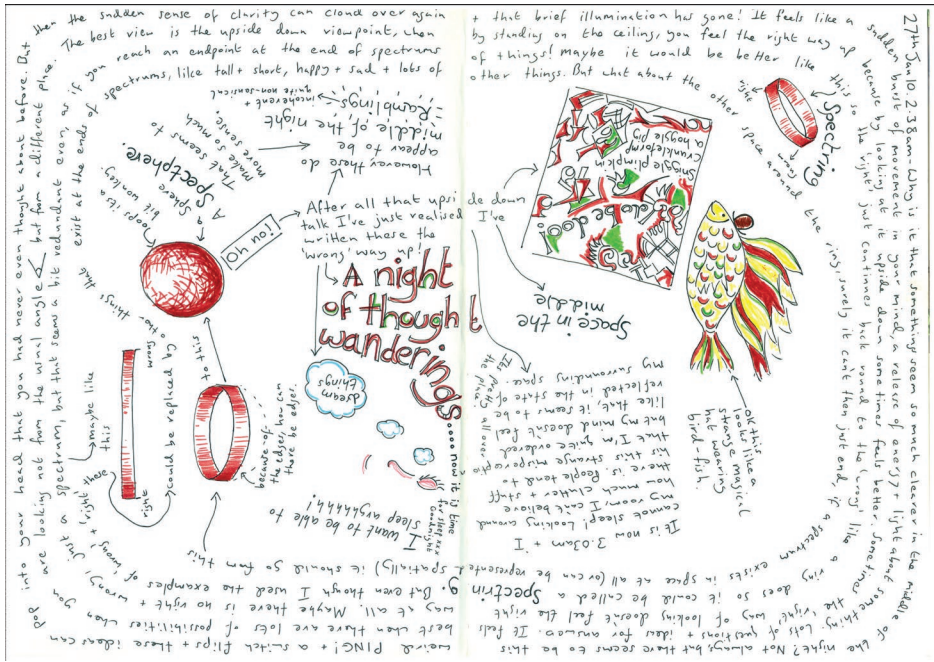 27th Jan 10. 2.38am – Why is it that something seem so much clearer in the middle of
the night? Not always, but there seems to be this
weird PING! + a switch flips + these ideas can
pop into your head that you had never even thought about before. But
then the sudden sense of clarity can cloud over again
+ that brief illumination has gone! It feels like a
sudden burst of movement in your mind, a release of energy + light about
something. Lots of questions + ideas for answers. It feels
best when there are lots of possibilities when
you are looking not from the usual angle, but from a different place.
The best view is the upside down viewpoint, when
by standing on the ceiling, you feel the right way up
because by looking at it upside down some times feels better. Sometimes the
'right' way of looking doesn't feel the right
way at all. Maybe there is no right +
wrong, just a spectrum, but that seems a bit redundant even, as if you
reach an endpoint at the end of spectrums
of things! maybe it would be better like
this so the 'right' just continues back round to the 'wrong' like a
ring does so it could be called a Spectring.
But even though I used the examples
of 'wrong' + 'right' these
could be replaced
other things that
exist at the ends of spectrums, like tall + short, happy + sad + lots of
other things. But what about the other space around the ring, surely it can't then just end, if a spectrum
exists in space at all (or can be represented spatially) it should go from this
maybe like
this
wrong
right
into
because of
the edges, how can
there be edges.
oops its a
bit wonkey
A sphere
Spectphere.
That seems to
make so much
more sense.
However, these do
appear to be
middle of the night
Ramblings
incoherent +
quite non-sensical
oh no!
After all that upside down
talk I've just realised I've
written these the
'wrong' way up!
A night
of thought
wanderings
.....now it is
time for sleep xxx
Goodnight
dream
things
I want to be able to
sleep arghhhhh!
Spectring
right
wrong
Snuggle plimpkin
crankleformp
a hoygle dig
do be doo
Space in the
middle
OK this
looks like a
strange magical
hat wearing
bird-fish.
It is now 3.03am + I
cannot sleep! Looking around
my room, I can't believe
how much clutter + stuff
there is. People tend to
have this strange misperception
that I'm quite ordered
but my mind doesn't feel
like that, it seems to be
reflected in the state of
my surrounding space.
It's pretty
all over
the place